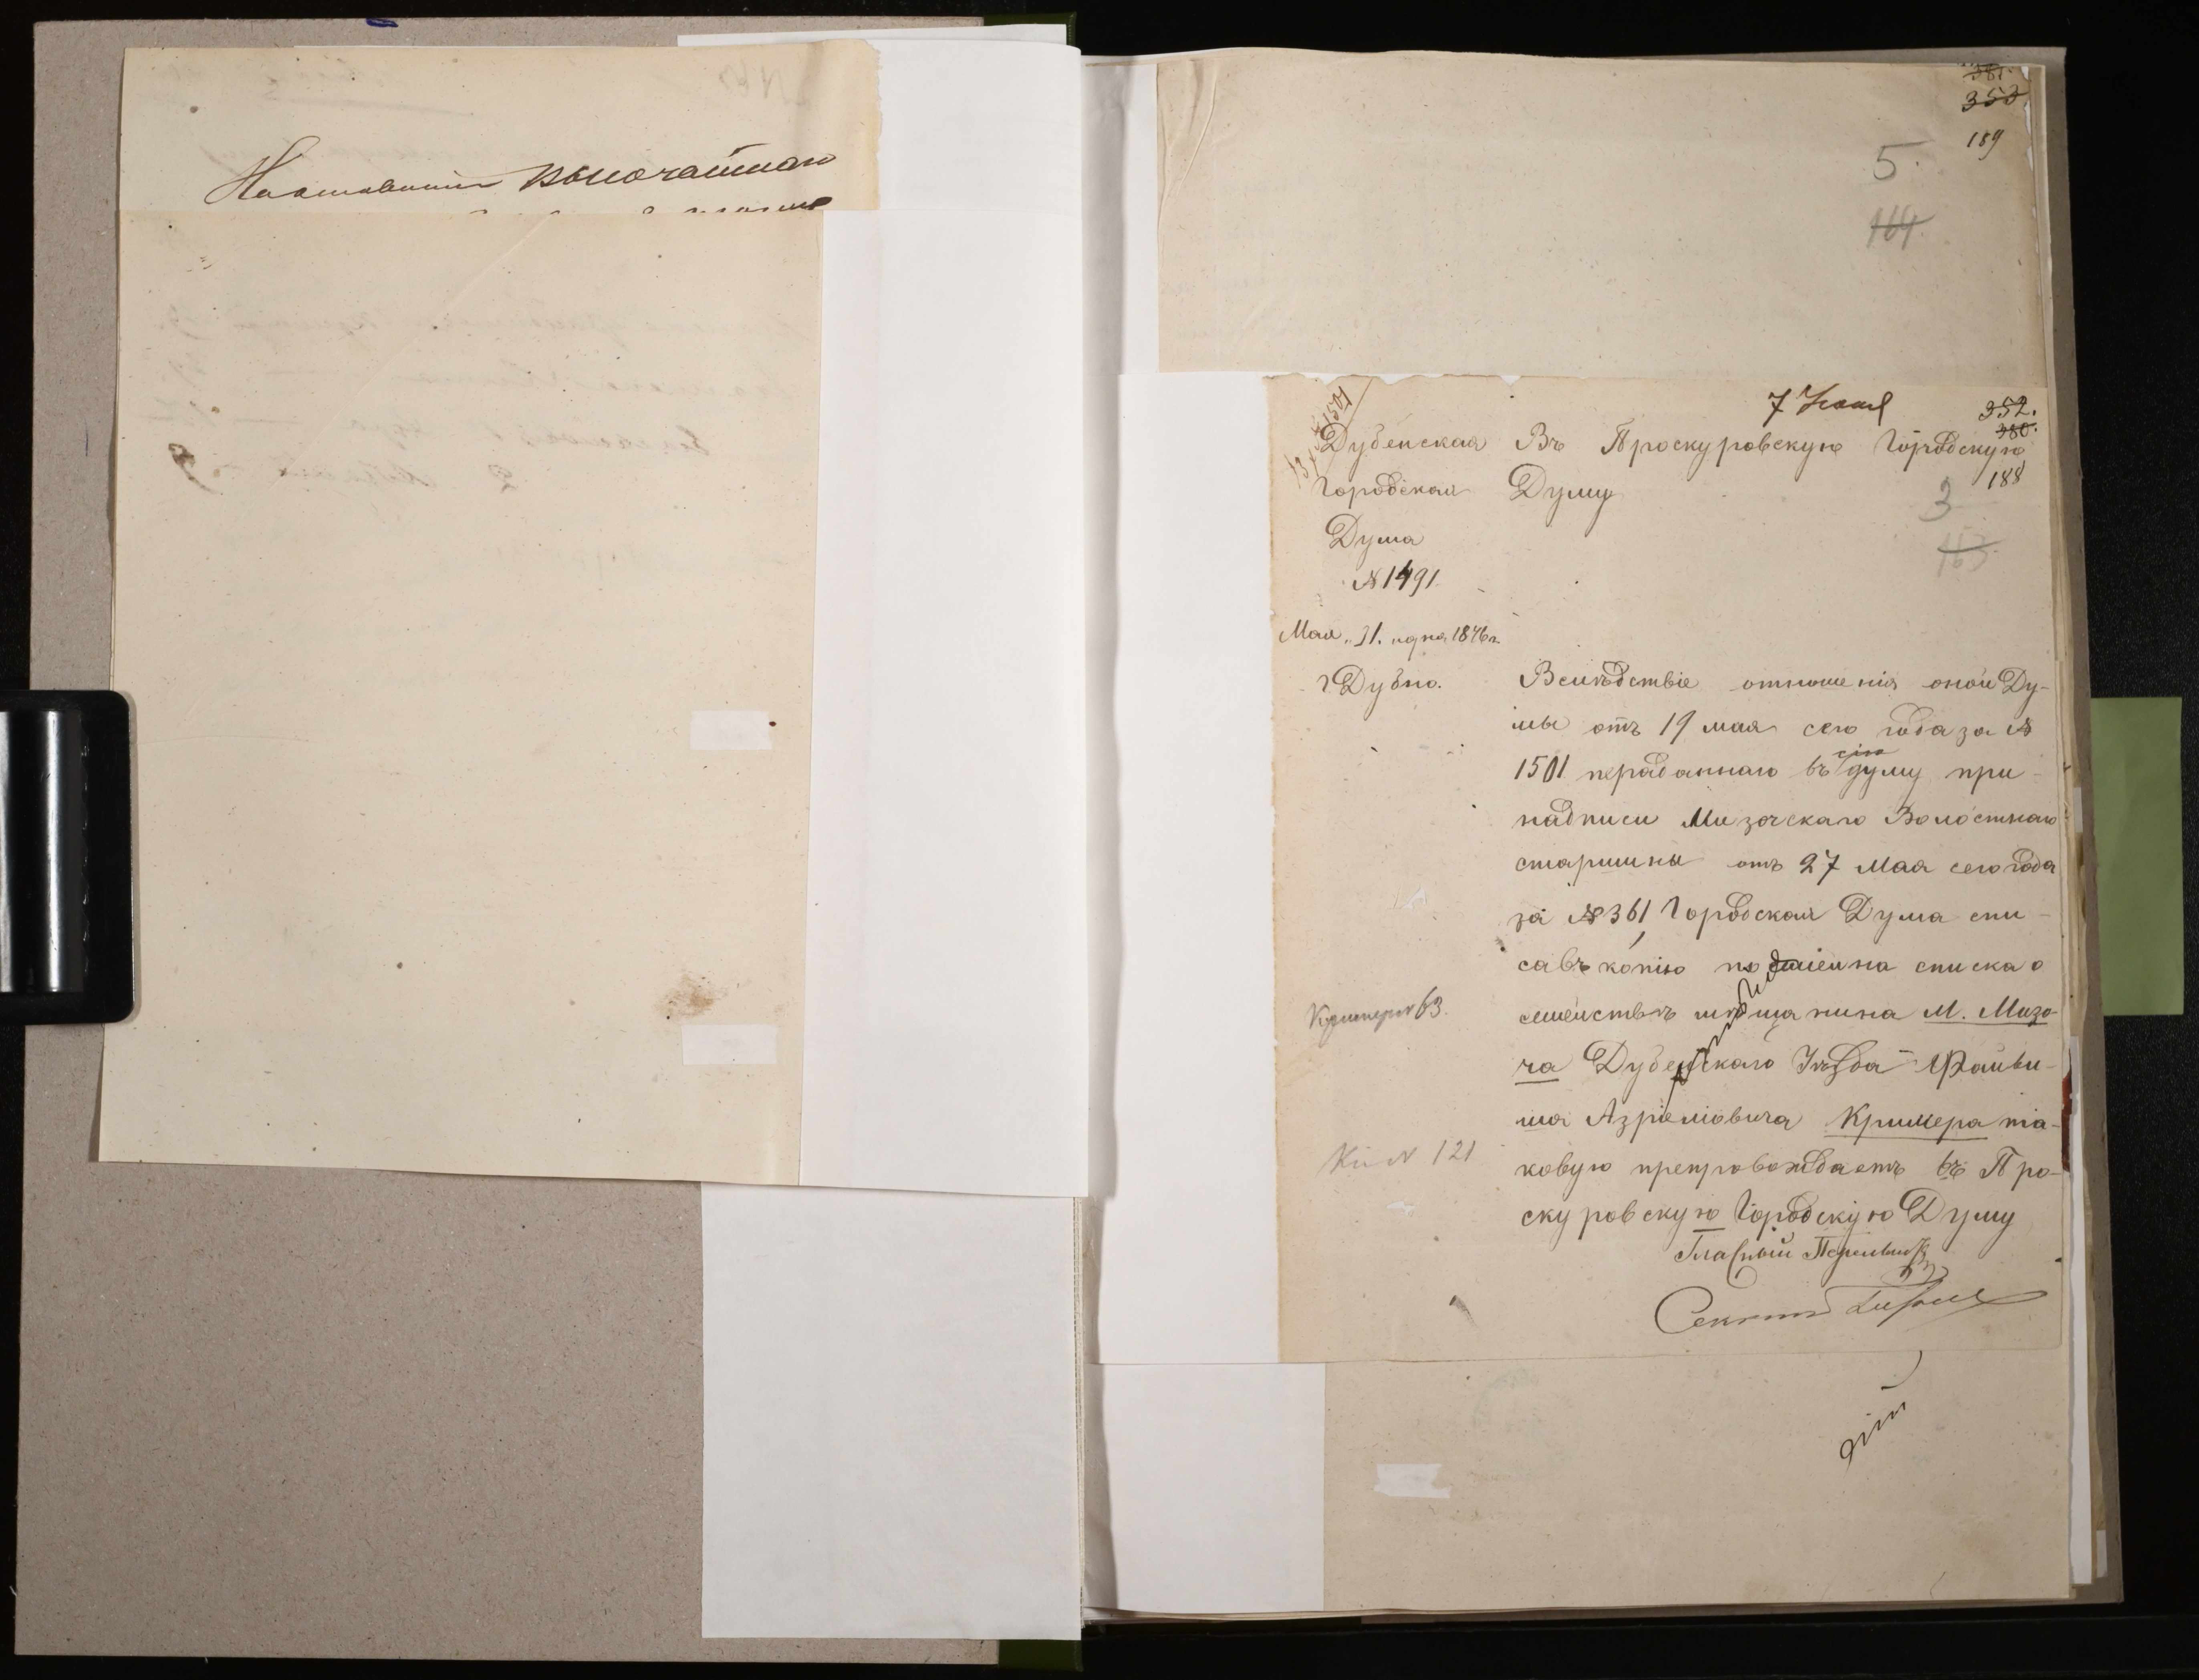 381.
353
189
5.
164.
7 Іюня
352.
380.
188
3
163.
Дубенская
Городская
Дума
№ 1491
Мая „31. дня 1876 г.
г. Дубно.
Въ Проскуровскую Городскую
Думу
Вслѣдствіе отношенія оной Ду-
мы отъ 19 мая сего года за №
1501 переданнаго въ сію думу при
надписи Мизочскаго Волостнаго
старшины отъ 27 Мая сего года
за № 361 Городская Дума спи-
савъ копію посемейна списка о
семействѣ мѣщанина М. Мизо-
ча Дубенскаго Уѣзда Файви-
ша Азріеліовича Кримера та-
ковую препровождаетъ въ Про-
скуровскую Городскую Думу
Гласный
Кримеръ № 63.
Ки № 121